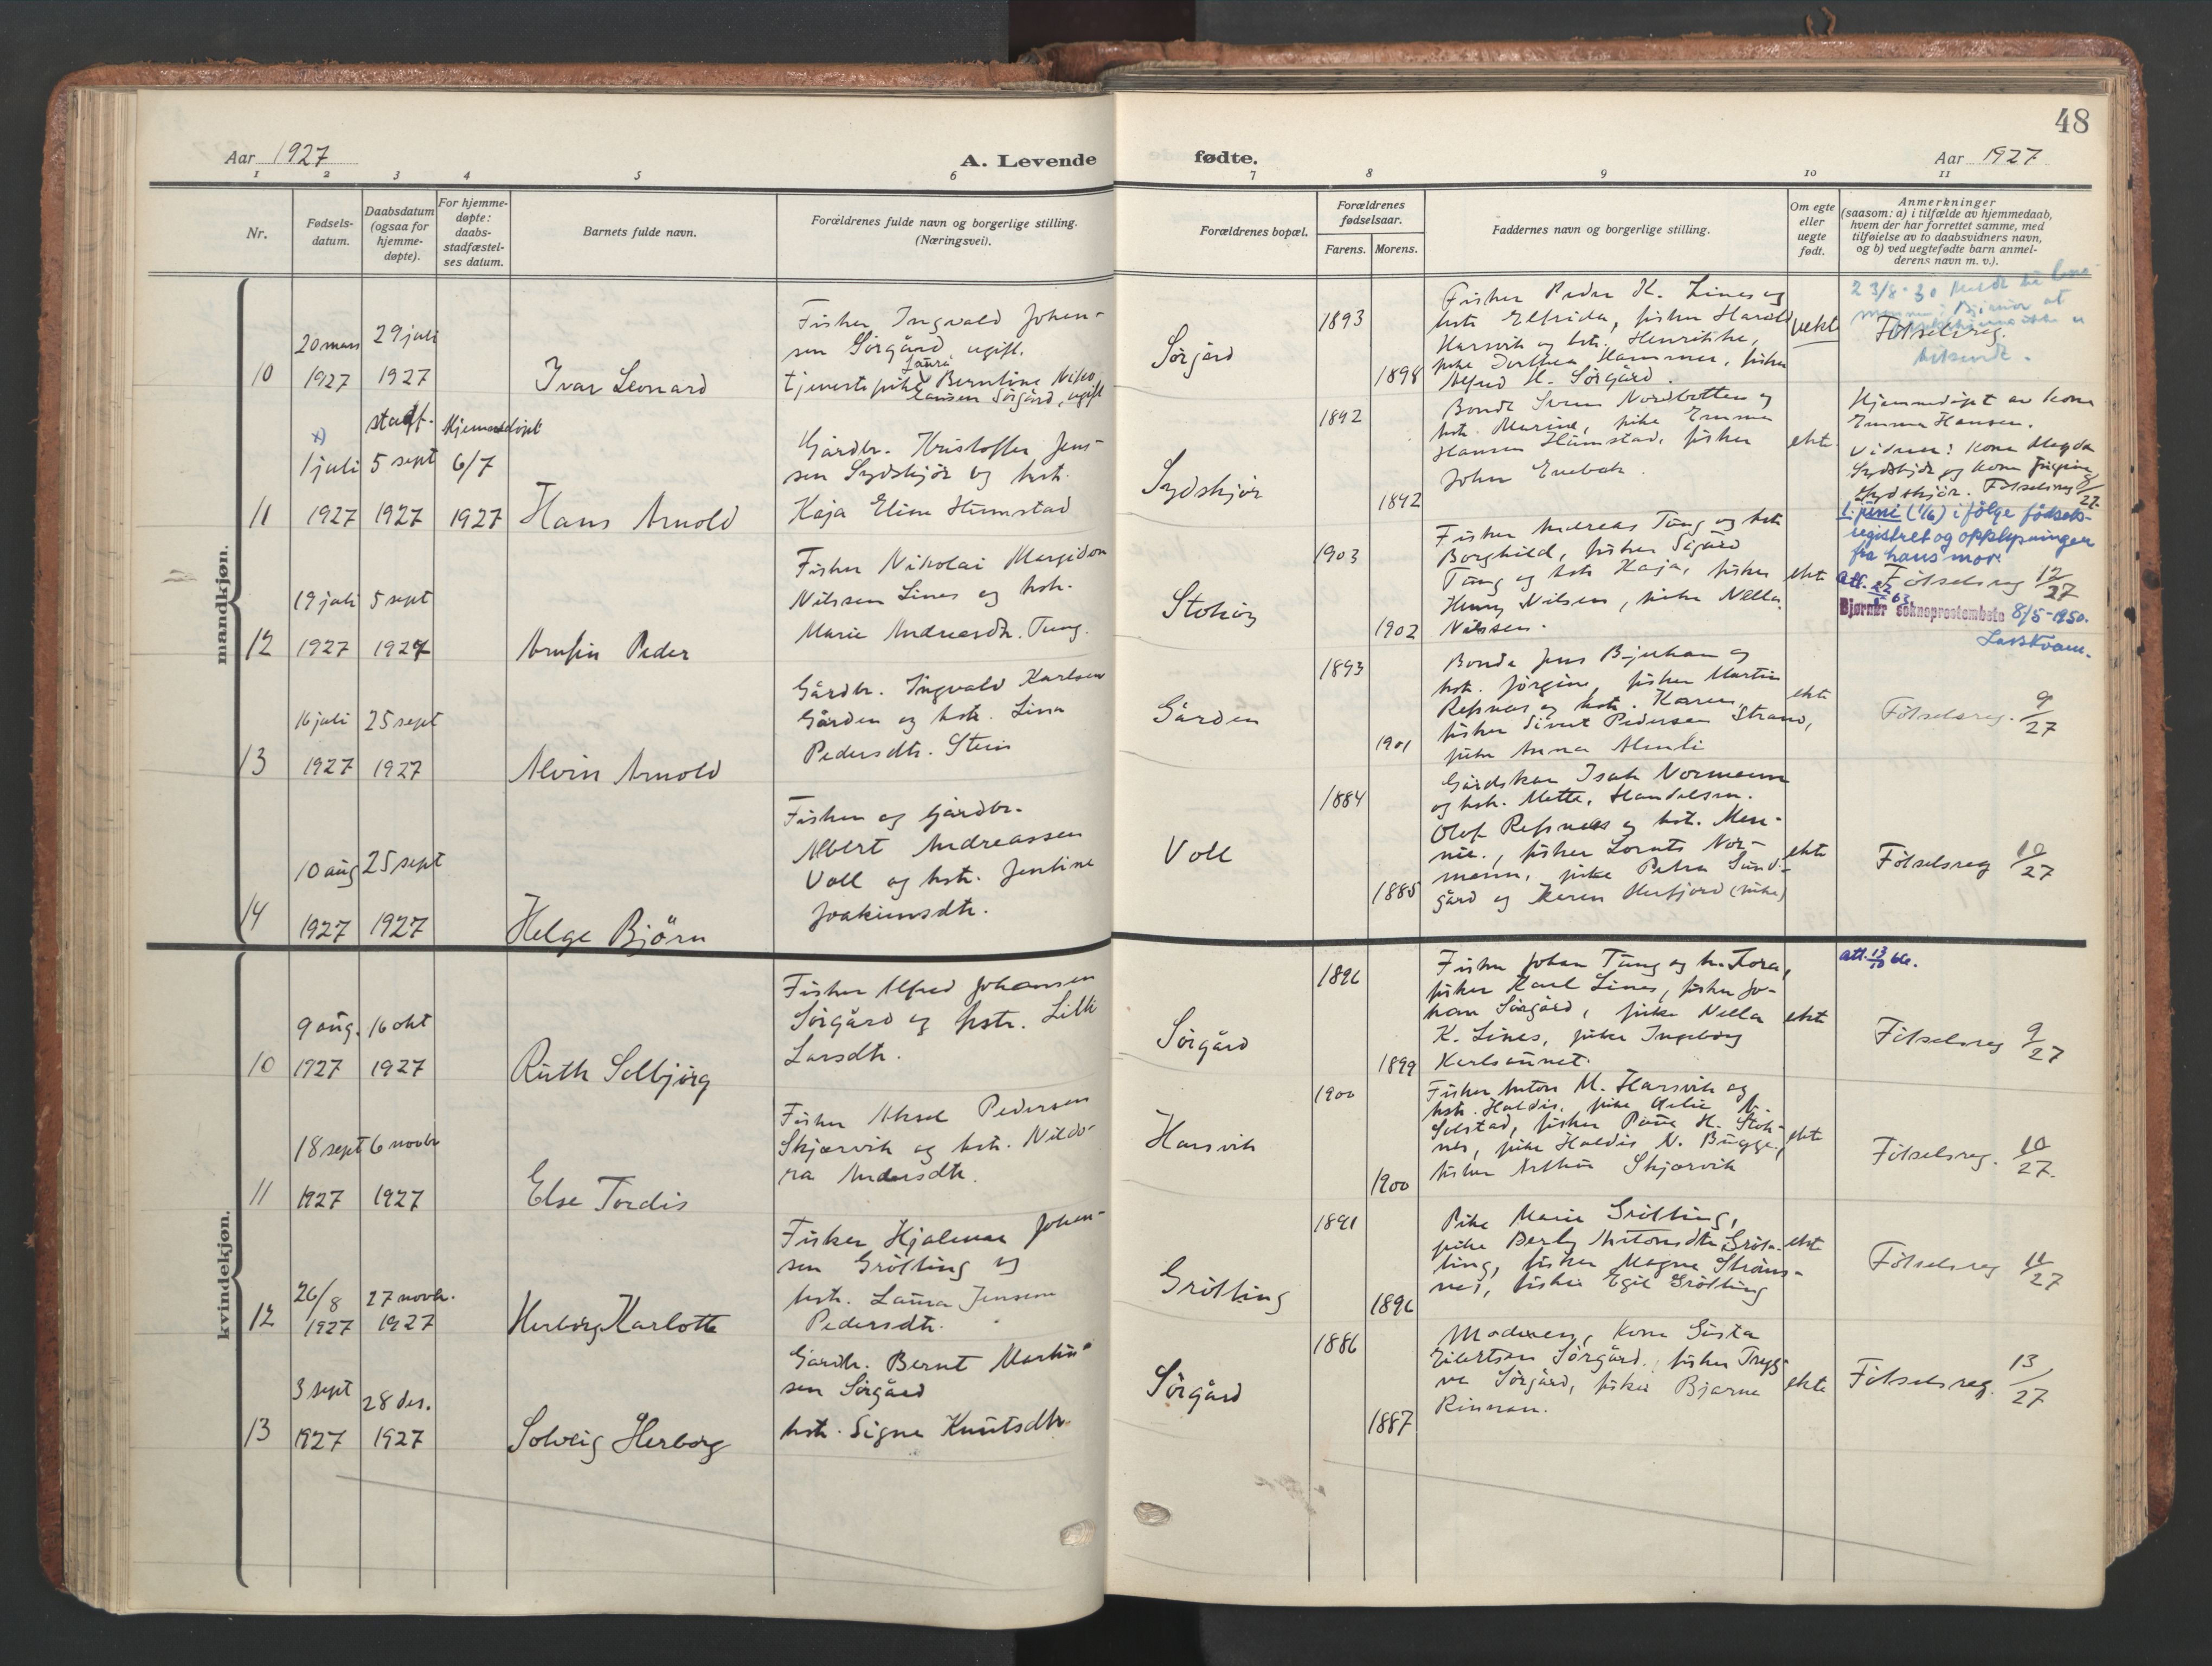 48
Aar 1927
A. Levende
fødte.
Aar 1927
1 2 3 4 5 6
7 8 9 10 11
Nr.
Fødsels-
datum.
Daabsdatum
(ogsaa for
hjemme-
døpte).
For hjemme-
døpte:
daabs-
stadfæstel-
ses datum.
Barnets fulde navn.
Forældrenes fulde navn og borgerlige stilling.
(Næringsvei).
Forældrenes bopæl.
Forældrenes
fødselsaar.
Farens. Morens.
Faddernes navn og borgerlige stilling.
Om egte
eller
uegte
født.
Anmerkninger
(saasom: a) i tilfælde av hjemmedaab,
hvem der har forrettet samme, med
tilføielse av to daabsvidners navn,
og b) ved uegtefødte barn anmel-
derens navn m. v.).
mandkjøn.
10
20 mars
1927
29 juli
1927
Ivar Leonard
Fisker Ingvald Johan-
sen Sørgård, ugift.
tjenestepike Laura Berntine Niko
laisen Sørgård, ugift
Sørgård
1893
1898
Fisker Peder K. Lines og
hstr Elfrida, fisker Harald
Harsvik og hstr. Henrikke,
pike Dorthea Hammer, fisker
Alfred H. Sørgård.
uekte
23/8-30
Fötselsreg.
11
x)
1 juli
1927
stadf.
5 sept
1927
Hjemmedöpt
6/7
1927
Hans Arnold
Gårdbr. Kristoffer Jen-
sen Sydskjör og hstr.
Kaja Eline Humstad
Sydskjör
1892
1892
Bonde Sven Nordbotten og
hstr. Marine, pike Emma
Hansen Humstad, fisker
John Enebak.
ekte
Hjemmedöpt av kona
Emma Hansen.
Vidner: Kona Magda
Sydskjör og kona Jörgine
Sydskjör. Fötselsreg 8/27
1. juni (1/6) i følge fødsels-
registret og opplysninger
fra hans mor.
12
19 juli
1927
5 sept
1927
Arnfin Peder
Fisker Nikolai Margido
Nilssen Lines og hstr.
Marie Andreasdtr. Tung.
Stokøy
1903
1902
Fisker Andreas Tung og hstr
Borghild, fisker Sigurd
Tung og hstr Kaja, fisker
Henry Nilsen, pike Nella
Nilssen.
ekte
Fötselsreg 12/27
att.
Bjørnør sokneprestembete 8/5-1950.
13
16 juli
1927
25 sept
1927
Alvin Arnold
Gårdbr. Ingvald Karlsen
Gården og hstr. Lina
Pedersdtr. Stein
Gården
1893
1901
Bonde Jens Bjuhan og
hstr. Jörgine, fisker Martin
Refsnes og hstr. Karen,
fisker Sivert Pedersen Strand,
pike Anna Almli
ekte
Fötselsreg. 9/27
14
10 aug
1927
25 sept
1927
Helge Björn
Fisker og gårdbr.
Albert Andreassen
Voll og hstr. Jentine
Joakimsdtr.
Voll
1884
1885
Gårdskar Isak Normann
og hstr. Mette, Handelsm.
Olof Refsnes og hstr. Men-
nie., fisker Lornts Nor-
mann, pike Petra Sund-
gård og Karen Hufjord (pike)
ekte
Fötselsreg 10/27
kvindekjøn.
10
9 aug.
1927
16 okt
1927
Ruth Solbjörg
Fisker Alfred Johansen
Sörgård og hstr. Lilli
Larsdtr.
Sörgård
1896
1899
Fisker Johan Tung og h. Kora,
fisker Karl Lines, fisker Jo-
han Sörgård, pike Nella
K. Lines, pike Ingeborg
Karlsaunet.
ekte
att. 13/10 66.
Fötselsreg 9/27
11
18 sept
1927
6 novbr
1927
Else Tordis
Fisker Aksel Pedersen
Skjærvik og hstr. Nildo-
ra Andersdtr.
Harsvik
1900
1900
Fisker Anton M. Harsvik og
hstr. Haldis, pike Helie N.
Solstad, fisker Paul H. Stok-
nes, pike Haldis N. Bugge,
fisker Arthur Skjærvik
ekte
Fötselsreg. 10/27.
12
26/8
1927
27 novbr.
1927
Herborg Karlotte
Fisker Hjalmar Johan-
sen Grötting og
hstr. Laura Jensine
Pedersdtr.
Grötting
1891
1896
Pike Marie Grötting,
pike Berly Antonsdtr Gröt-
ting, fisker Magne Strøm-
nes, fisker Egil Grötting
ekte
Fötselsreg 11/27
13
3 sept
1927
28 des.
1927
Solveig Herborg
Gårdbr. Bernt Martin-
sen Sörgård
hstr. Signe Knutsdtr
Sörgård
1886
1887
Moderen, Kona Gusta
Eilertsen Sörgård, fisker Tryg-
ve Sörgård, fisker Bjarne
Rinnan.
ekte
Fötselsreg. 13/27